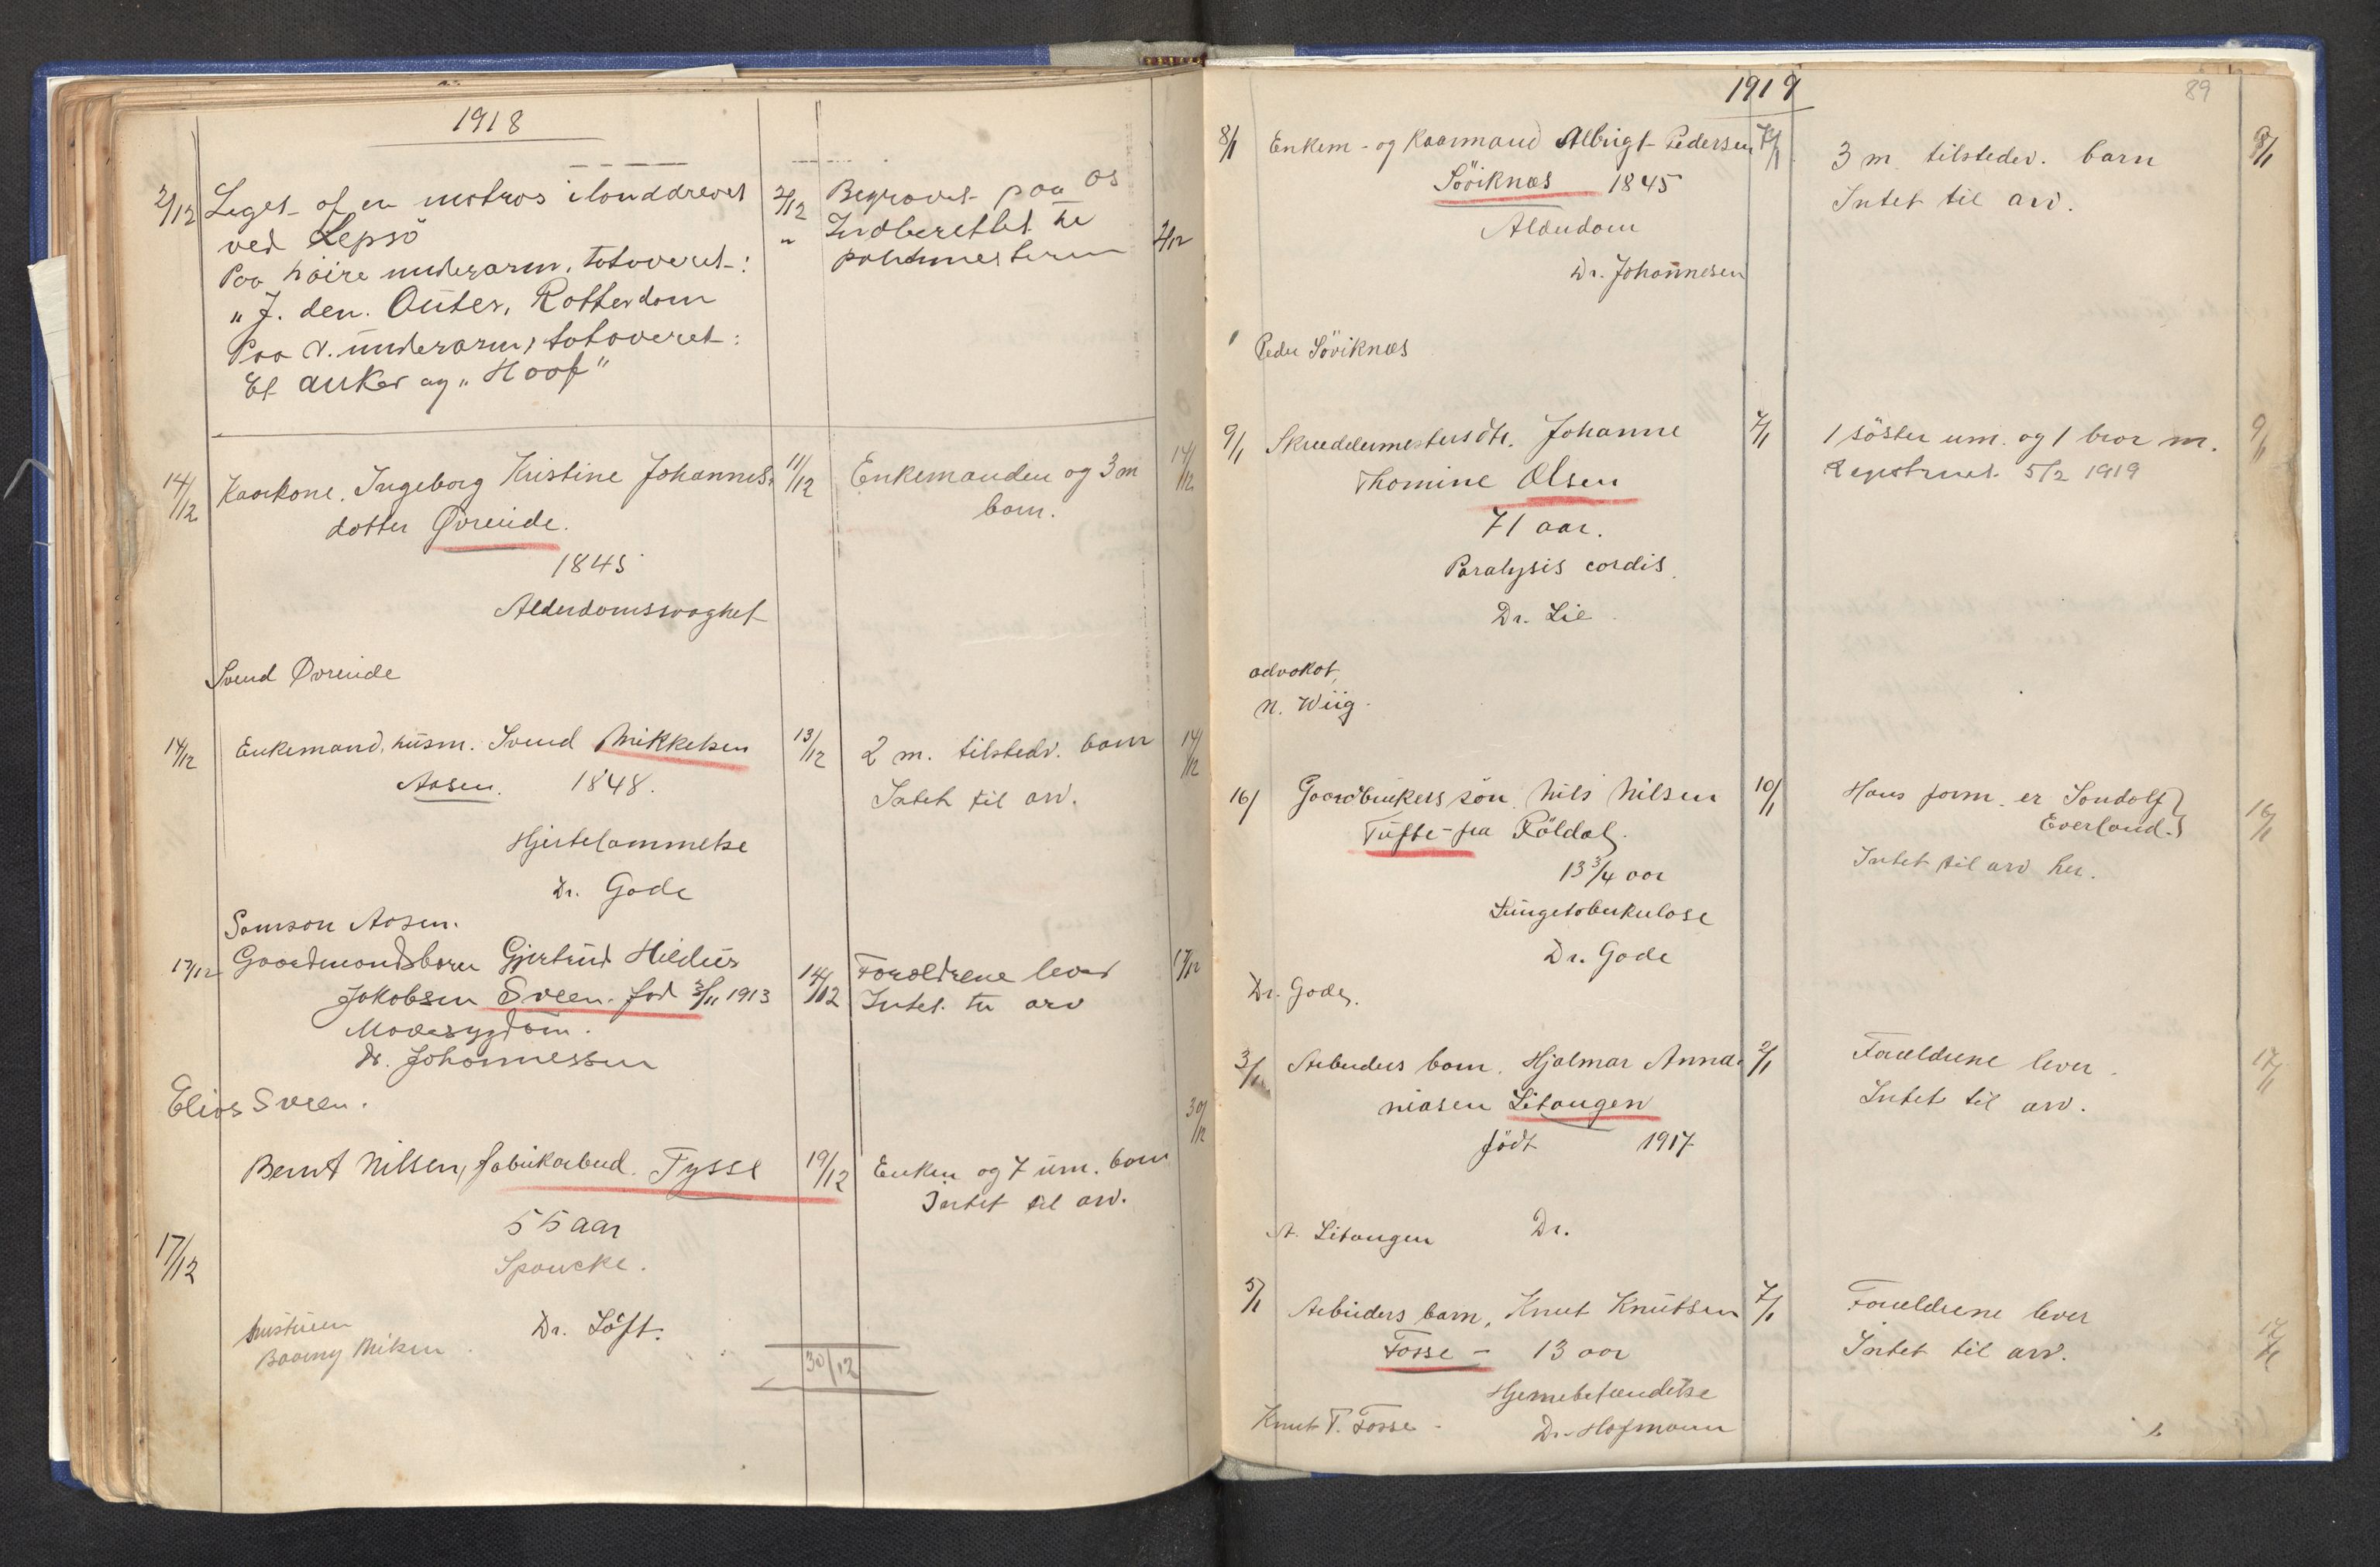 1918
2/12 Liget af en matros ilanddrevet 2/12 Begravet paa Os
ved Lepsö " Indberettet til
Paa höire underarm, tatoveret: politimesteren 2/12
"J. den. Outer, Rotterdam
Paa v. underarm, tatoveret:
Et anker og "Hoof"
14/12 Kaarkone. Ingeborg Kristine Johannes- 11/12 Enkemanden og 3 m 14/12
dotter Øvreide. barn.
1845
Alderdomssvaghet
Svend Øvreide
14/12 Enkemand, husm. Svend Mikkelsen 13/12 2 m. tilstedv. barn 14/12
Aasen. 1848. Intet til arv.
Hjertelammelse
Dr. Gade
Samson Aasen.
17/12 Gaardmandsbarn Gjertrud Hildur 14/12 Forældrene lever 17/12
Jakobsen Sveen. fød 3/11 1913 Intet til arv
Mavesygdom.
Dr. Johannessen
Elias Sveen.
30/12
Bernt Nilsen, fabrikarbeid. Tysse 19/12 Enken og 7 um. barn
Intet til arv.
55 aar
17/12 Spanske.
Dr. Löft.
30/12
1919
89
8/1 Enkem- og Kaarmand Albrigt Pedersen 3 m tilstedev. barn 8/1
Söviknæs 1845 Intet til arv.
Alderdom
Dr. Johannesen
Peder Söviknæs
9/1 Skreddermestersdtr. Johanne 7/1 1 söster um. og 1 bror m. 9/1
Thomine Olsen Registreret 5/2 1919
71 aar.
Paralysis cordis.
Dr. Lie
advokat,
N. Wiig.
16/ Gaardbrukers sön Nils Nilsen 10/1 Hans form. er Sandolf 16/1
Tufte - fra Röldal. Everland.
13 3/4 aar Intet til arv her.
Lungetoberkulose
Dr. Gade
Dr. Gade.
3/1 Arbeiders barn. Hjalmar Anna- 2/1 Forældrene lever. 17/1
niasen Litangen Intet til arv.
födt 1917
A. Litangen Dr.
5/1 Arbeiders barn, Knut Knutsen 7/1 Forældrene lever
Fosse - 13 aar Intet til arv.
Hjernebetændelse
Knut T. Fosse - Dr. Hofmann